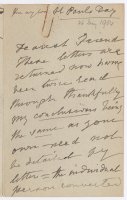 St Pauls Day
Dearest Friend
These letters are
returned now having
been twice read
through thankfully
my conclusions being
the same as your
own need not
be detailed by
letter = the individual
person converted